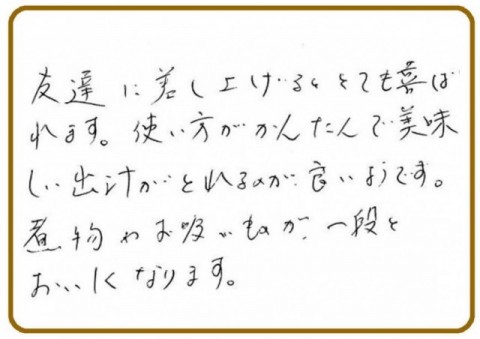 友達に差し上げるととても喜ば
れます。使い方がかんたんで美味
しい出汁がとれるのが良いようです。
煮物やお吸いものが一段と
おいしくなります。